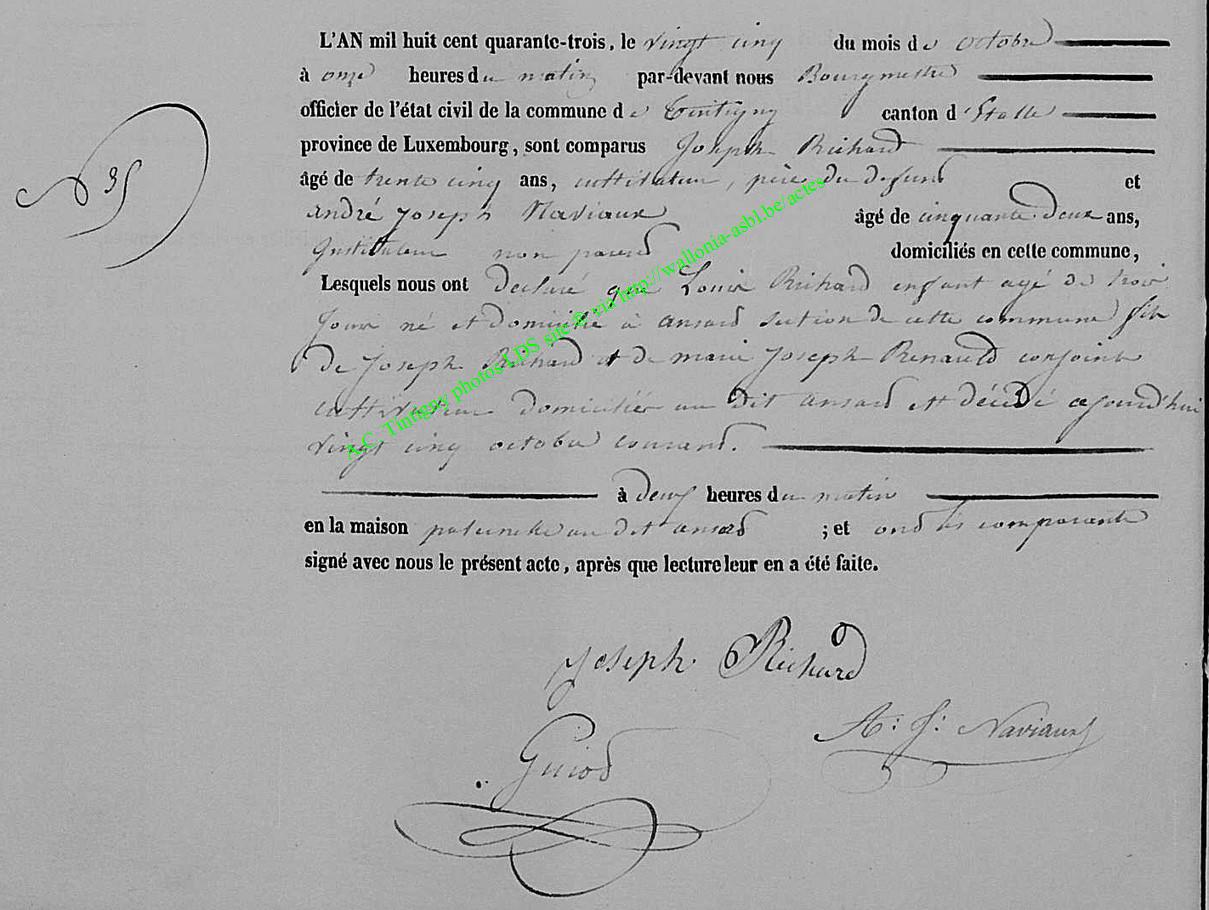 L'AN mil huit cent quarante-trois, le vingt cinq du mois de octobre
à onze heures du matin par-devant nous Bourgmestre
officier de l'état civil de la commune de Tintigny canton d'Etalle
province de Luxembourg, sont comparus Joseph Richard
35
âgé de trente cinq ans, cultivateur, père du defunt et
andré Joseph Naviaux âgé de cinquante deux ans,
Instituteur non parent domiciliés en cette commune,
Lesquels nous ont declaré que Louis Richard enfant agé de trois
jours né et domicilié à ansart section de cette commune fils
de Joseph Richard et de marie Joseph Renauld conjoints
cultivateurs domiciliés au dit ansart et décédé aujourd'hui
vingt cinq octobre courant.
à deux heures du matin
en la maison paternelle au dit ansart ; et ont les comparants
signé avec nous le présent acte, après que lecture leur en a été faite.
Joseph Richard
A: J: Naviaux
A.C. Tintigny photos LDS site © via http://wallonia-asbl.be/actes